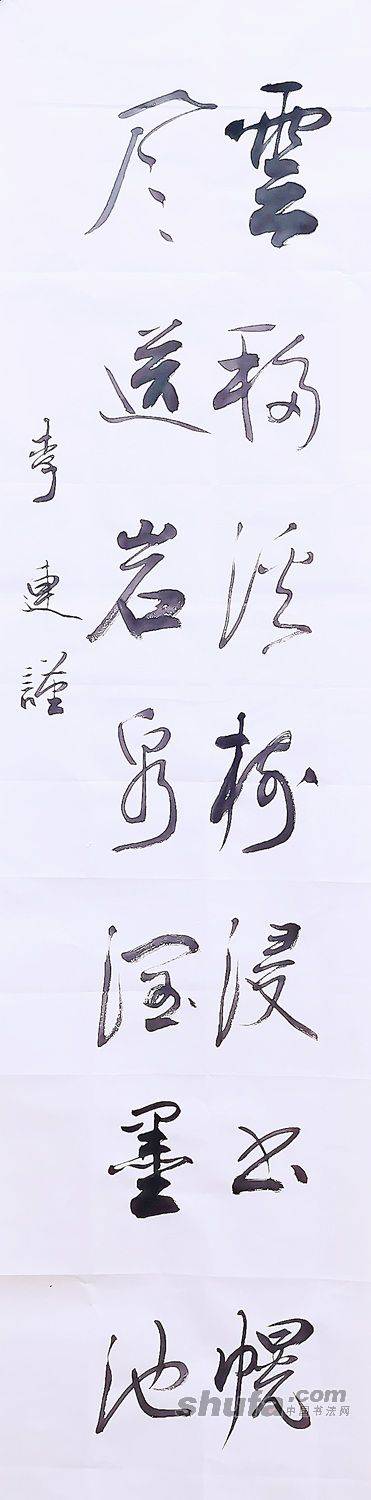 雲移溪樹浸書幌
風送岩泉潤墨池
李連謹
shufa.com
中国书法网